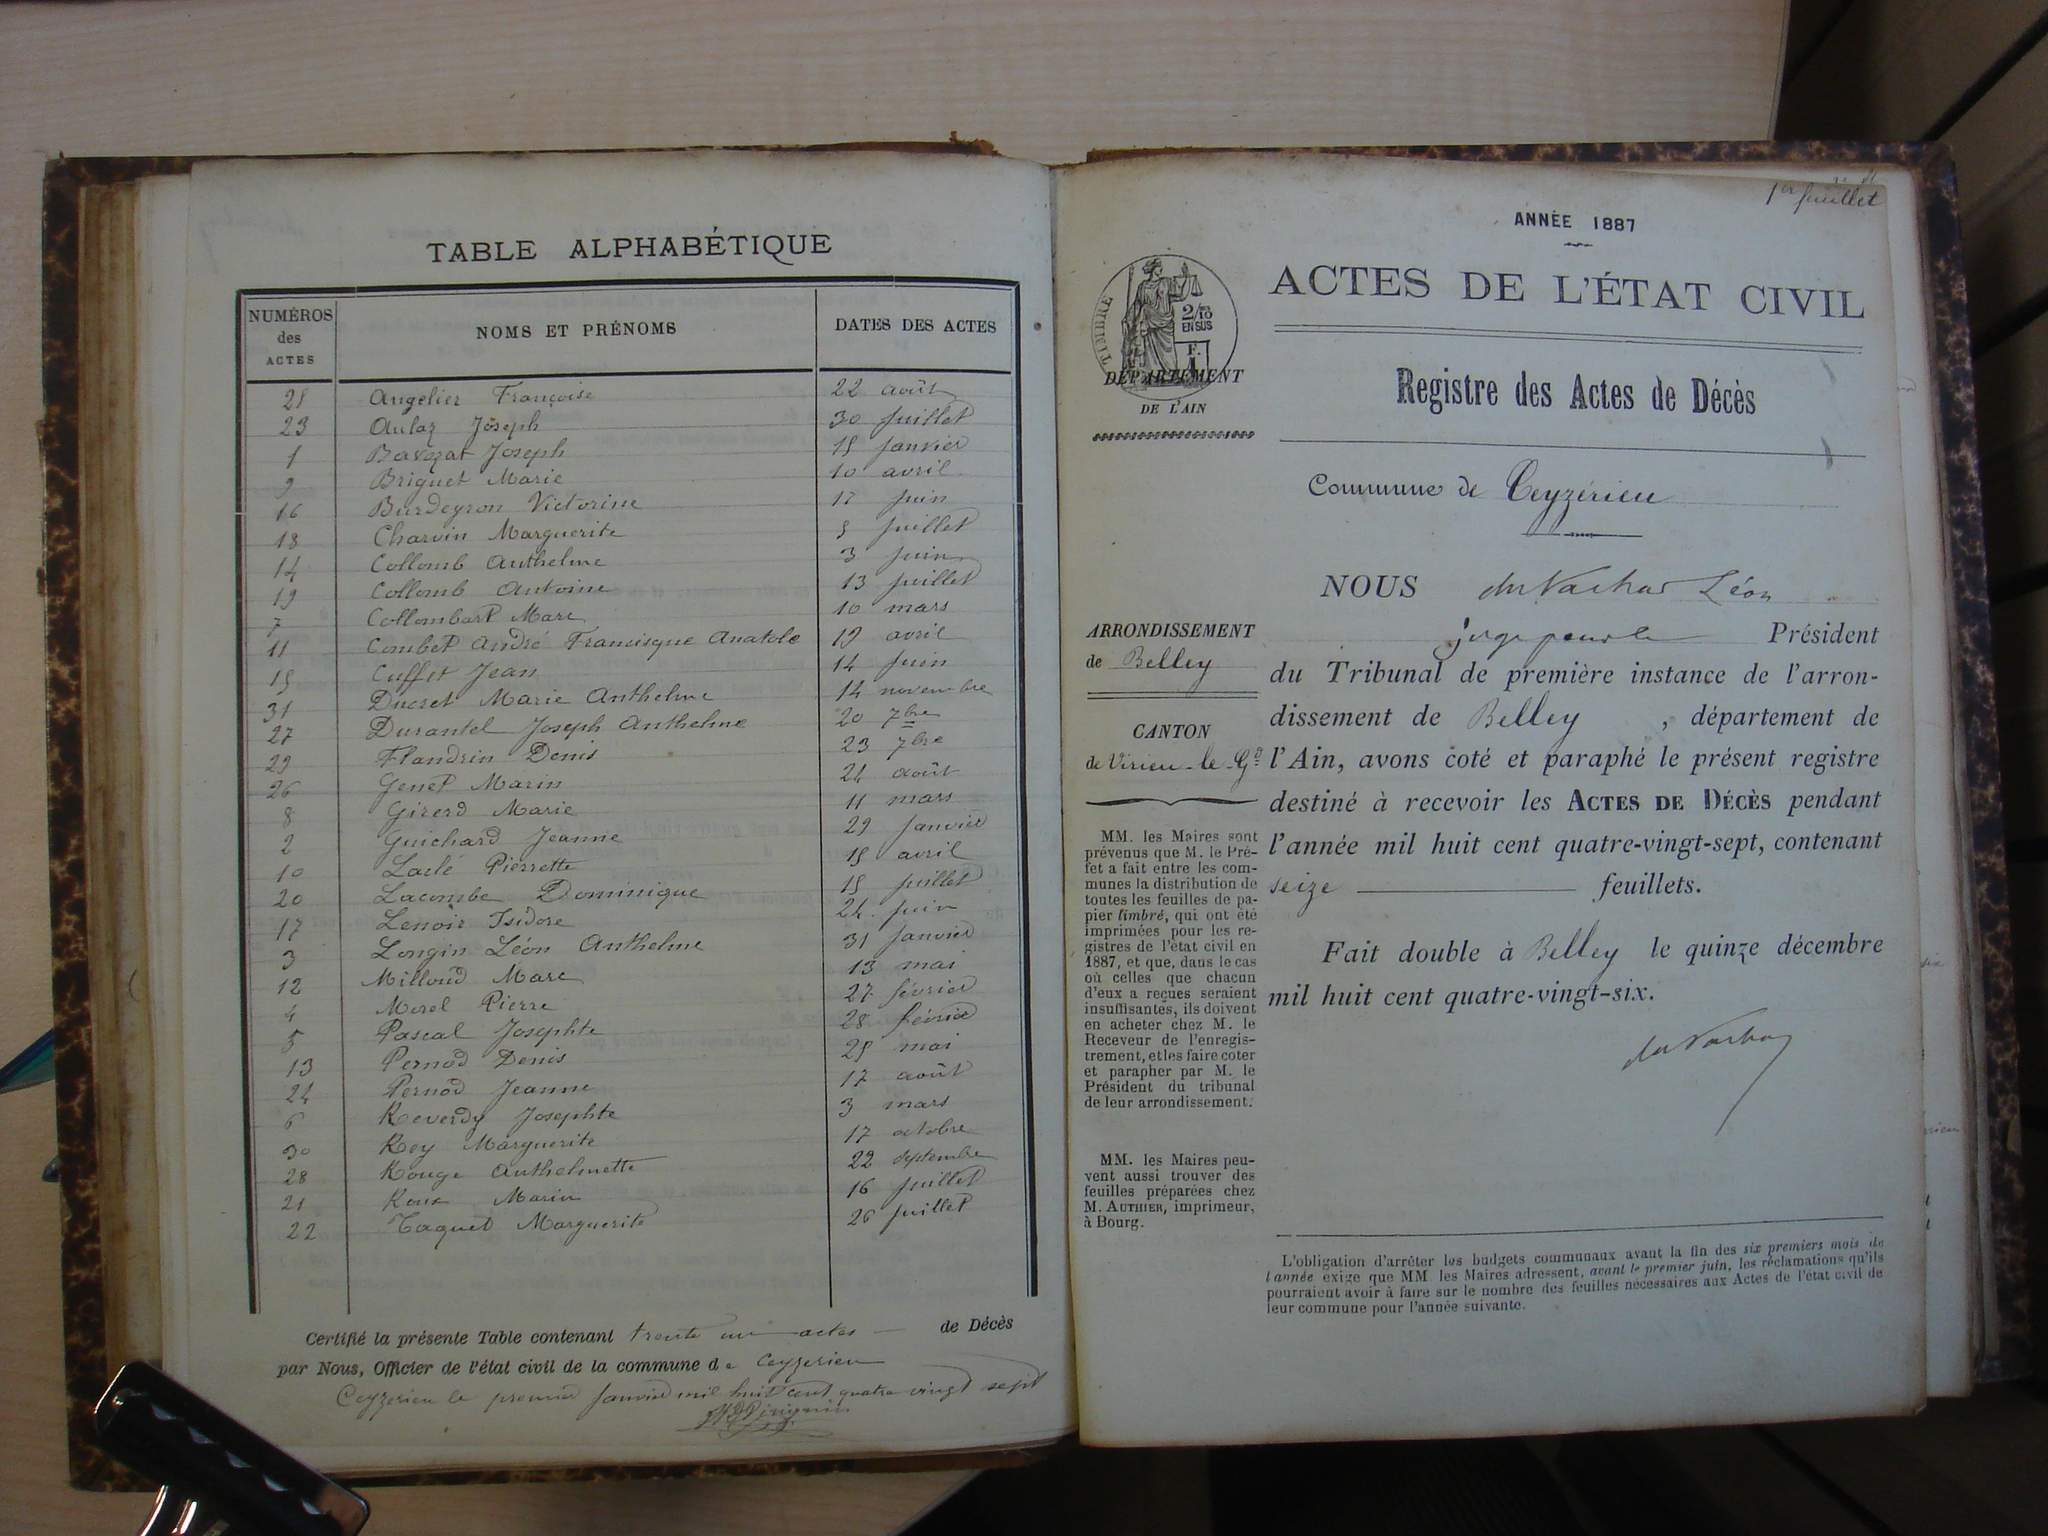 TABLE ALPHABÉTIQUE
NUMÉROS des ACTES NOMS ET PRÉNOMS DATES DES ACTES
25 Angelier Françoise 22 août
23 Aulaz Joseph 30 juillet
1 Bavozat Joseph 15 janvier
9 Briguet Marie 10 avril
16 Burdeyron Victorine 17 juin
18 Charvin Marguerite 5 juillet
14 Collomb Anthelme 3 juin
19 Collomb Antoine 13 juillet
7 Collombart Marc 10 mars
11 Combet André Francisque Anatole 19 avril
15 Cuffet Jean 14 juin
31 Ducret Marie Anthelme 14 novembre
27 Durantel Joseph Anthelme 20 7bre
29 Flandrin Denis 23 7bre
26 Genet Marin 24 août
8 Girerd Marie 11 mars
2 Guichard Jeanne 29 janvier
10 Laclé Pierrette 15 avril
20 Lacombe Dominique 15 juillet
17 Lenoir Isidore 24 juin
3 Longin Léon Anthelme 31 janvier
12 Milloud Marc 13 mai
4 Morel Pierre 27 février
5 Pascal Josephte 28 février
13 Pernod Denis 25 mai
24 Pernod Jeanne 17 août
6 Reverdy Josephte 3 mars
30 Rey Marguerite 17 octobre
28 Rouge Anthelmette 22 septembre
21 Roux Marin 16 juillet
22 Taquet Marguerite 26 juillet
Certifié la présente Table contenant trente un actes de Décès
par Nous, Officier de l'état civil de la commune de Ceyzerieu
Ceyzerieu le premier janvier mil huit cent quatre vingt sept
1er feuillet
ANNÉE 1887
ACTES DE L'ÉTAT CIVIL
TIMBRE
2/10
EN SUS
F.
DÉPARTEMENT
DE L'AIN
Registre des Actes de Décès
Commune de Ceyzérieu
NOUS Léon
Président
du Tribunal de première instance de l'arron-
dissement de Belley, département de
l'Ain, avons coté et paraphé le présent registre
destiné à recevoir les ACTES DE DÉCÈS pendant
l'année mil huit cent quatre-vingt-sept, contenant
seize feuillets.
Fait double à Belley le quinze décembre
mil huit cent quatre-vingt-six.
ARRONDISSEMENT
de Belley
CANTON
de Virieu-le-Gd
MM. les Maires sont
prévenus que M. le Pré-
fet a fait entre les com-
munes la distribution de
toutes les feuilles de pa-
pier timbré, qui ont été
imprimées pour les re-
gistres de l'état civil en
1887, et que, dans le cas
où celles que chacun
d'eux a reçues seraient
insuffisantes, ils doivent
en acheter chez M. le
Receveur de l'enregis-
trement, et les faire coter
et parapher par M. le
Président du tribunal
de leur arrondissement.
MM. les Maires peu-
vent aussi trouver des
feuilles préparées chez
M. AUTHIER, imprimeur,
à Bourg.
L'obligation d'arrêter les budgets communaux avant la fin des six premiers mois de
l'année exige que MM. les Maires adressent, avant le premier juin, les réclamations qu'ils
pourraient avoir à faire sur le nombre des feuilles nécessaires aux Actes de l'état civil de
leur commune pour l'année suivante.